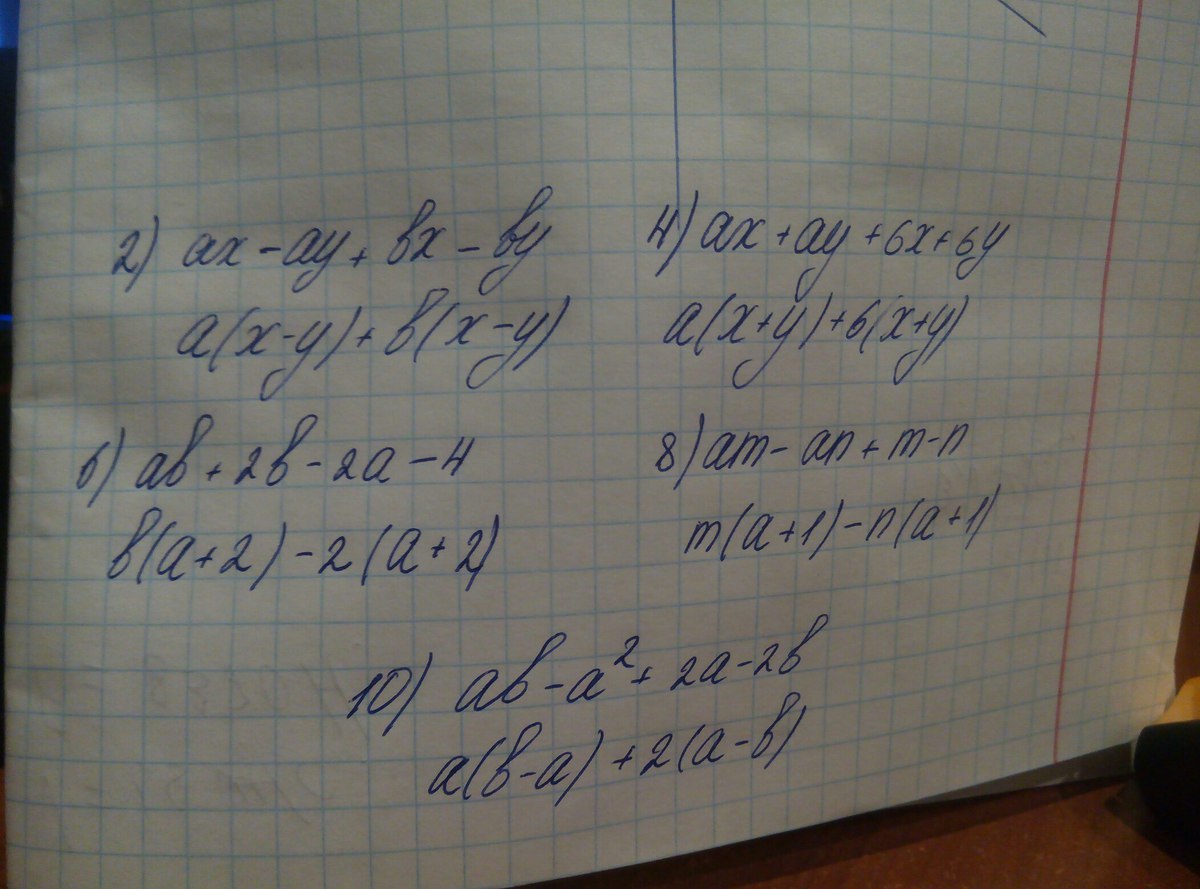 2) ax - ay + bx - by
a(x-y) + b(x-y)
4) ax + ay + 6x + 6y
a(x+y) + 6(x+y)
6) ab + 2b - 2a - 4
b(a+2) - 2(a+2)
8) am - an + m - n
m(a+1) - n(a+1)
10) ab - a² + 2a - 2b
a(b-a) + 2(a-b)